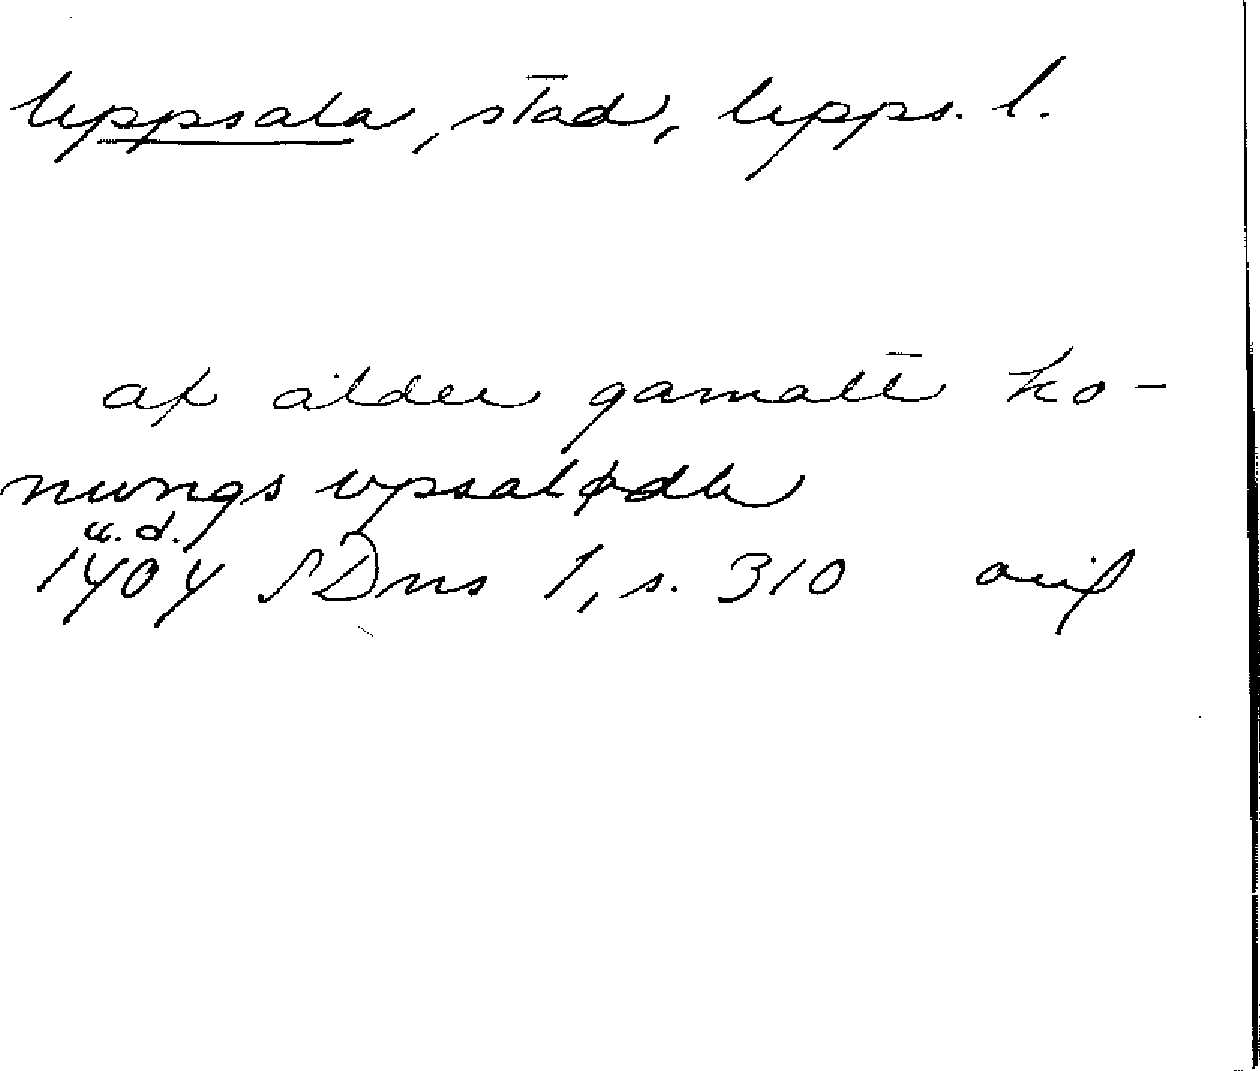 Uppsala, stad, Upps. l.
af ålder gamalt ko-
nungs vpsalødh
u.d.
1404 SDns 1, s. 310 avif